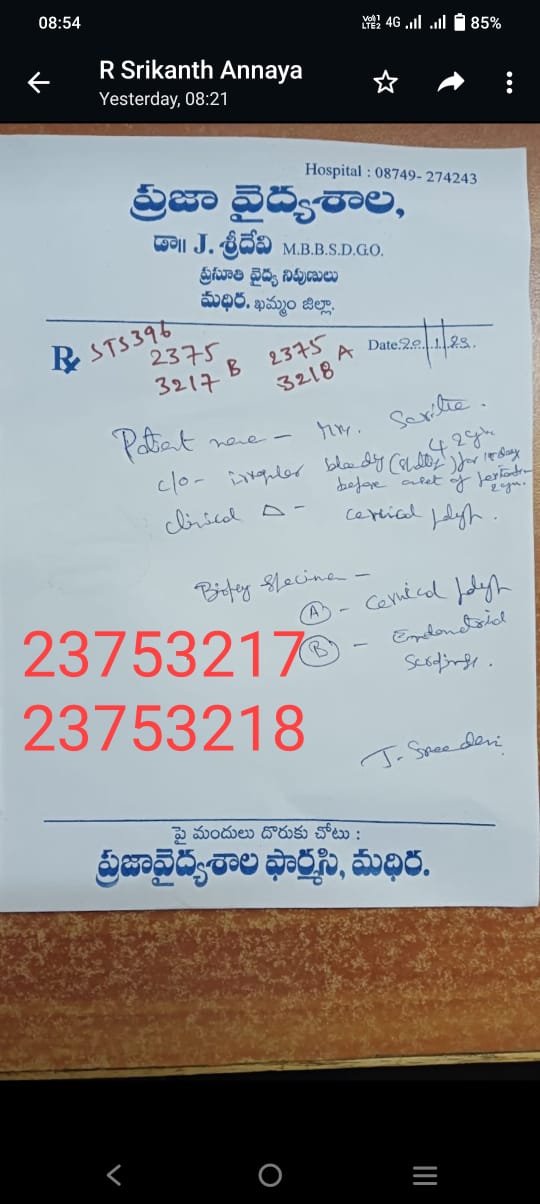 08:54
Vo)) 4G LTE2 85%
R Srikanth Annaya
Yesterday, 08:21
Hospital : 08749- 274243
ప్రజా వైద్యశాల,
డా॥ J. శ్రీదేవి M.B.B.S.D.G.O.
ప్రసూతి వైద్య నిపుణులు
మధిర. ఖమ్మం జిల్లా.
Rx STS396 Date:20/1/23.
2375 B 2375 A
3217 3218
Patient name - Mrs. Saritha.
c/o - irregular bleedy for 15 day 42
before onset of
clinical Δ - cervical polyp.
Biopsy specimen -
(A) - cervical polyp
(B) - Endometrial
23753217
scrapings.
23753218
J. Sreedevi
పై మందులు దొరుకు చోటు :
ప్రజావైద్యశాల ఫార్మసి, మధిర.